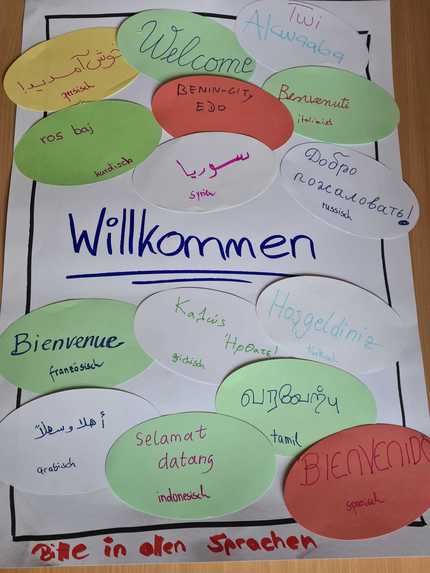 Twi
Akwaaba
Welcome
خوش آمدید!
persisch
BENIN-CITY
EDO
Benvenuti
italienisch
ros baj
kurdisch
سوريا
Syrien
Добро
пожаловать!
russisch
Willkommen
Καλώς
Ήρθατε!
grichisch
Hoşgeldiniz
türkisch
Bienvenue
französisch
வரவேற்பு
tamil
أهلا وسهلاً
arabisch
Selamat
datang
indonesisch
BIENVENIDO
spanisch
Bitte in allen Sprachen